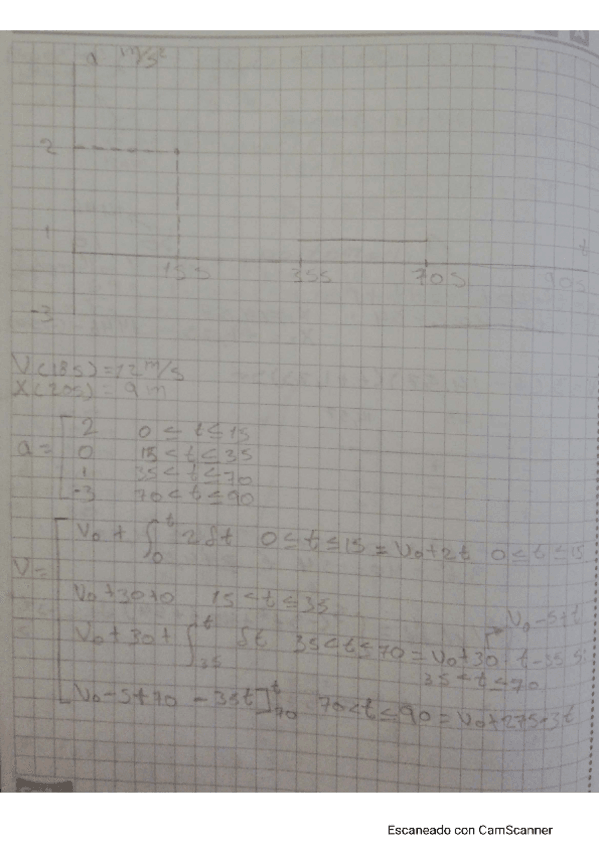 a m/s²
2
1
15s 35s 70s 90s
t
-3
V(18s)=12 m/s
X(20s)= 9 m
a= 2 0 ≤ t ≤ 15
0 15 < t ≤ 35
1 35 < t ≤ 70
-3 70 < t ≤ 90
V= V₀ + ∫₀ᵗ 2 dt 0 ≤ t ≤ 15 = V₀+2t 0 ≤ t ≤ 15
V₀+30+0 15 < t ≤ 35
V₀-5+t
V₀+30+ ∫₃₅ᵗ dt 35<t≤70 = V₀+30 t-35 si
35 < t ≤ 70
V₀-5+70 -3 t]₇₀ᵗ 70<t≤90 = V₀+275-3t
Escaneado con CamScanner